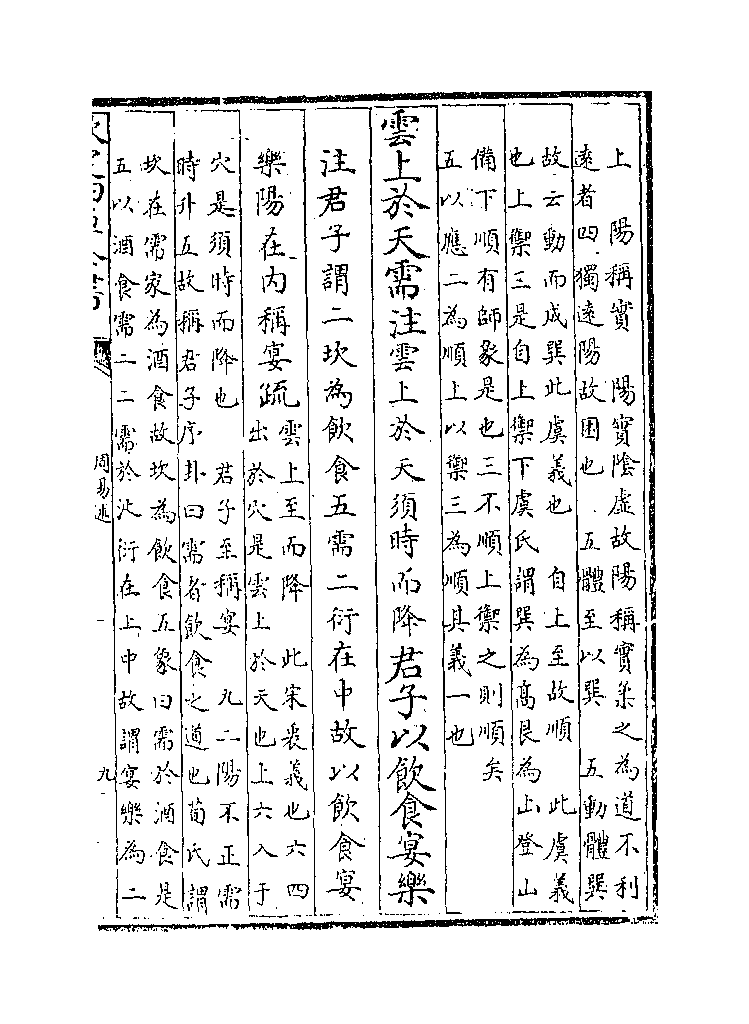 上　陽稱實　陽實陰虛故陽稱實柔之為道不利
遠者四獨遠陽故困也　五體至以巽　五動體巽
故云動而成巽此虞義也　自上至故順　此虞義
也上禦三是自上禦下虞氏謂巽為高艮為山登山
備下順有師象是也三不順上禦之則順矣
五以應二為順上以禦三為順其義一也
雲上於天需注雲上於天須時而降君子以飲食宴樂
注君子謂二坎為飲食五需二衍在中故以飲食宴
樂陽在内稱宴疏雲上至而降　此宋衷義也六四
出於穴是雲上於天也上六入于
穴是須時而降也　君子至稱宴　九二陽不正需
時升五故稱君子序卦曰需者飲食之道也荀氏謂
坎在需家為酒食故坎為飲食五象曰需於酒食是
五以酒食需二二需於沙衍在上中故謂宴樂為二
欽定四庫全書
周易述
九